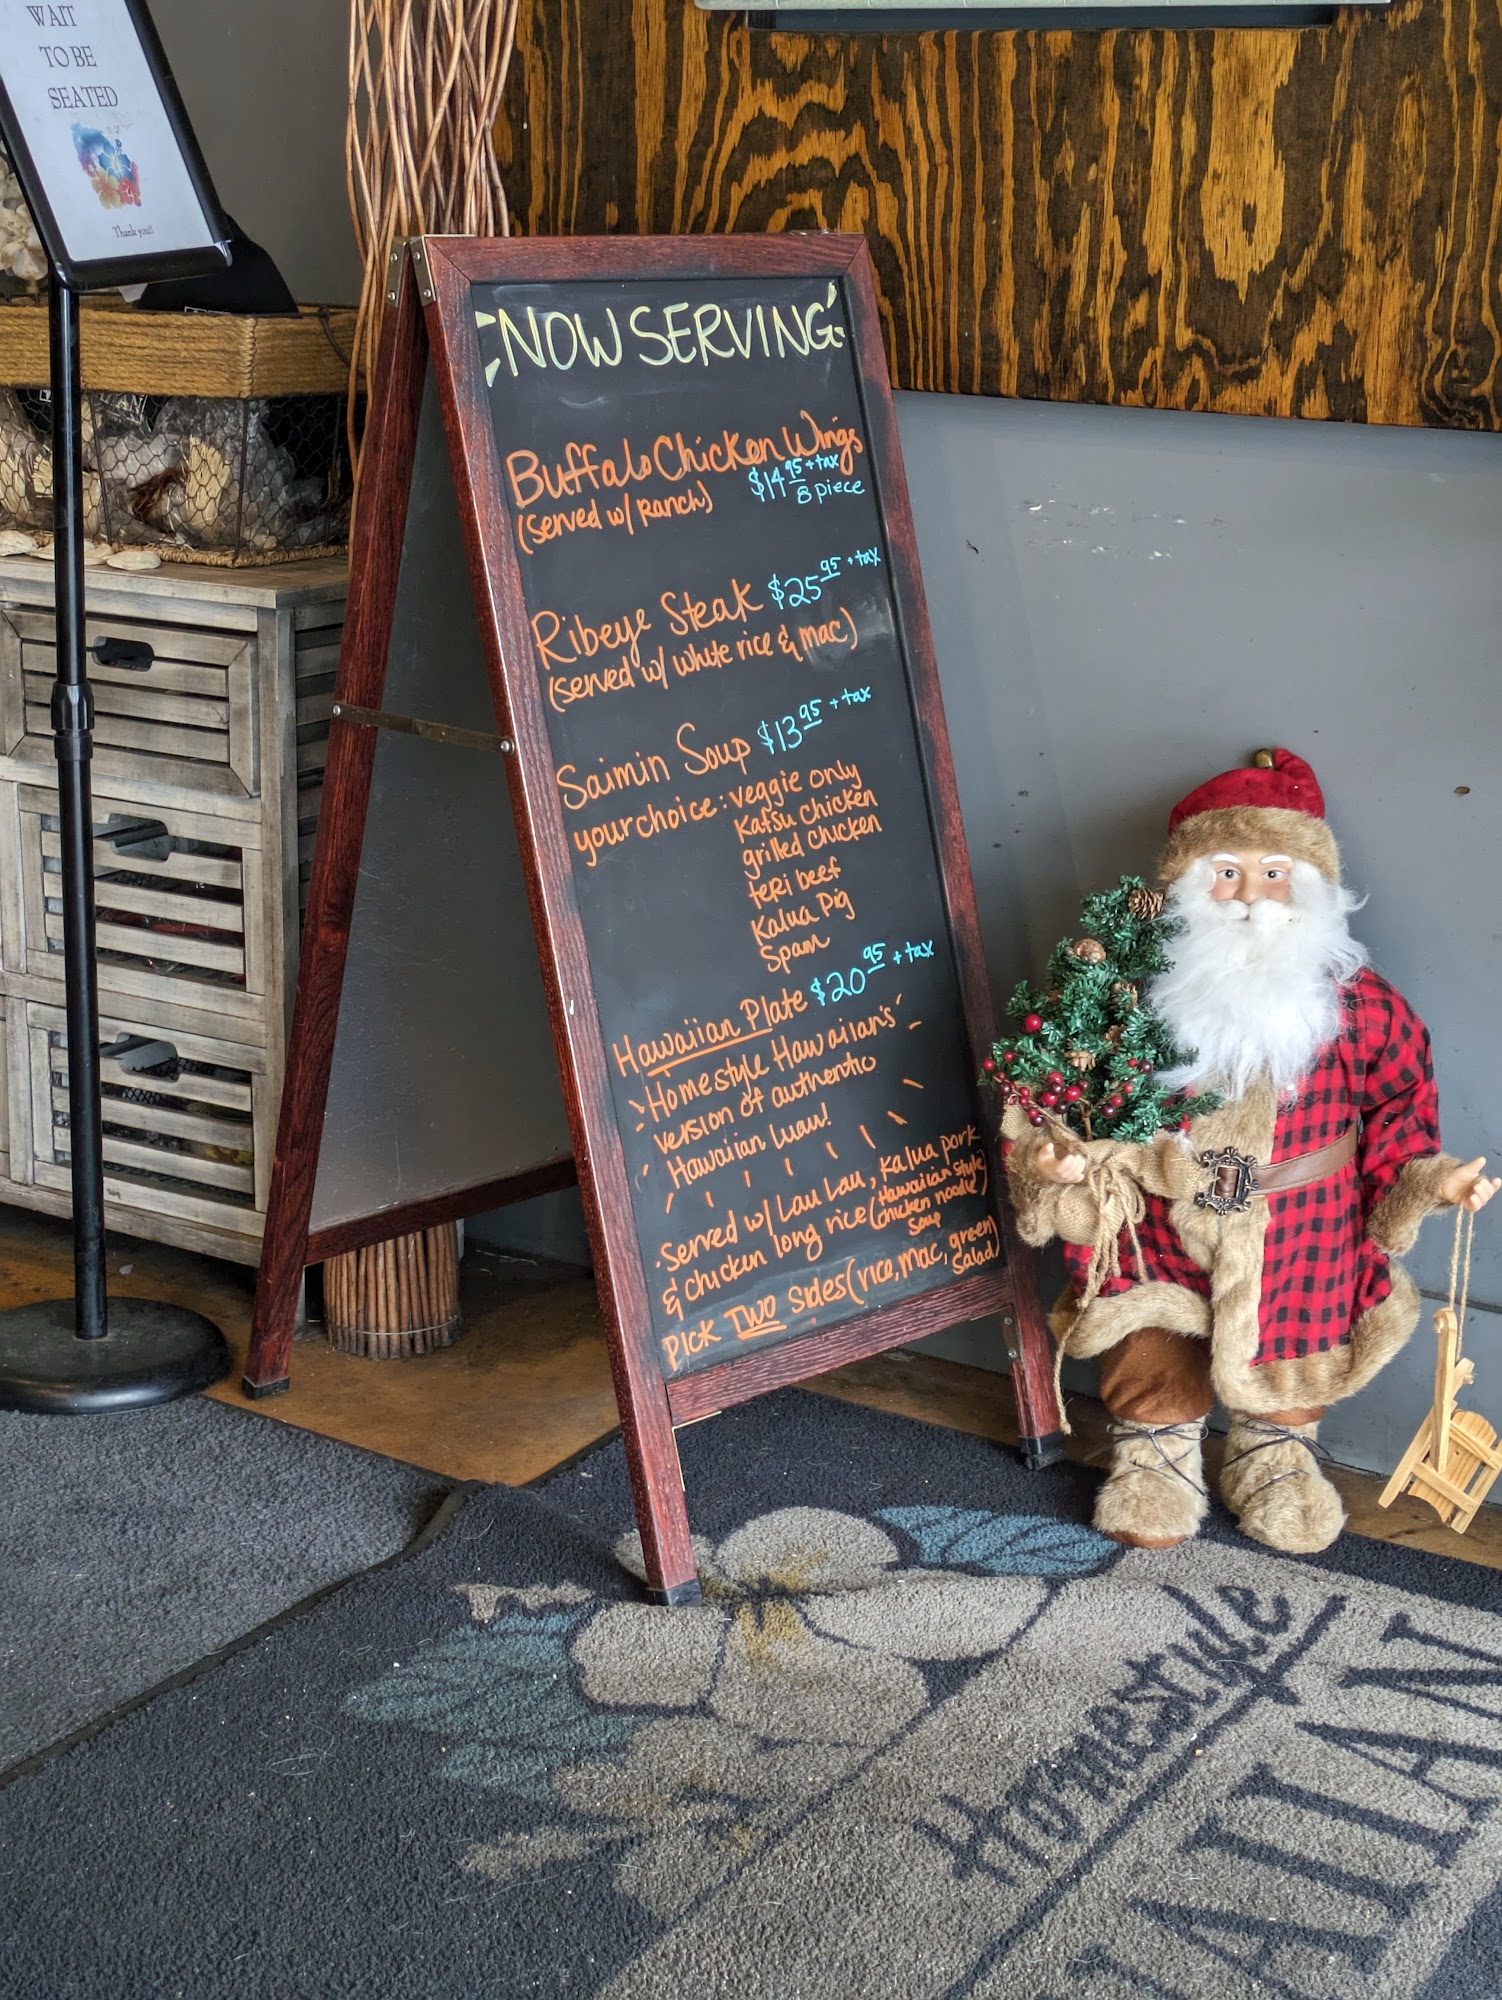 WAIT
TO BE
SEATED
Thank you!!
NOW SERVING
Buffalo Chicken Wings
(served w/ Ranch)
$14.95 + tax
8 piece
Ribeye Steak $25.95 + tax
(served w/ white rice & mac)
Saimin Soup $13.95 + tax
your choice: veggie only
Katsu chicken
grilled chicken
teri beef
Kalua Pig
Spam
Hawaiian Plate $20.95 + tax
Homestyle Hawaiian's
version of authentic
Hawaiian Luau!
· Served w/ Lau Lau, Kalua pork
& chicken long rice (Hawaiian style
chicken noodle
soup)
Pick TWO sides (rice, mac, green
salad)
Homestyle